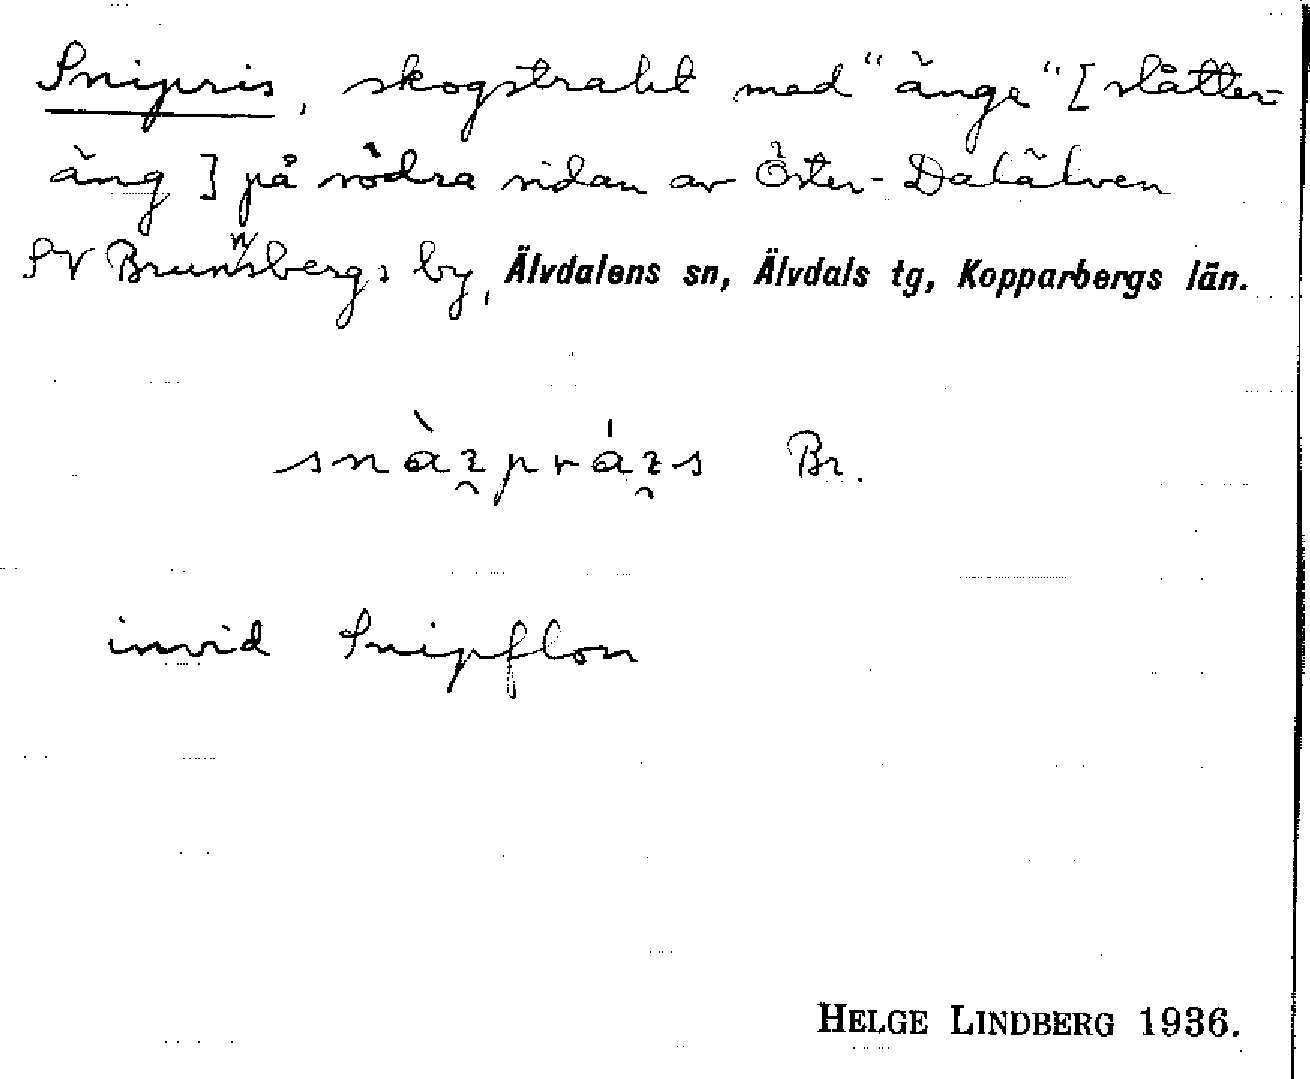 Snipris, skogstrakt med "änge" [slåtter-
äng] på södra sidan av Öster-Dalälven
SV Brunnsbergs by, Älvdalens sn, Älvdals tg, Kopparbergs län.
Br.
invid Snipflon
HELGE LINDBERG 1936.